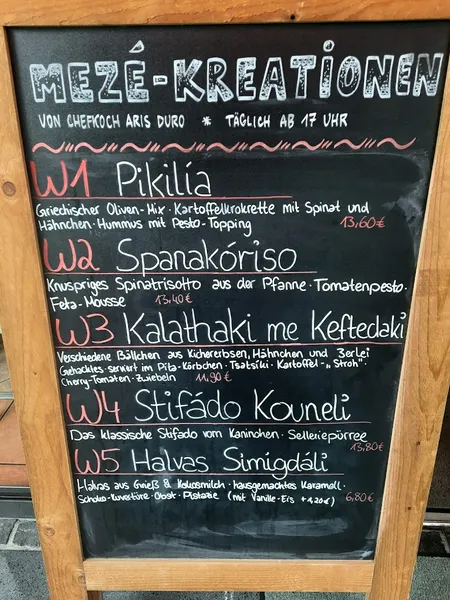 MEZÉ-KREATIONEN
VON CHEFKOCH ARIS DURO * TÄGLICH AB 17 UHR
W1 Pikilía
Griechischer Oliven-Mix · Kartoffelkrokrette mit Spinat und
Hähnchen · Hummus mit Pesto-Topping 13,60€
W2 Spanakóriso
Knuspriges Spinatrisotto aus der Pfanne · Tomatenpesto ·
Feta-Mousse 13,40€
W3 Kalathaki me Keftedaki
Verschiedene Bällchen aus Kichererbsen, Hähnchen und 3erlei
Gehacktes · serviert im Pita-Körbchen · Tsatsiki · Kartoffel-„Stroh" ·
Cherry-Tomaten · Zwiebeln 11,90€
W4 Stifádo Kouneli
Das klassische Stifado vom Kaninchen · Selleriepürree
13,80€
W5 Halvas Simigdáli
Halvas aus Grieß & Kokosmilch · hausgemachtes Karamell ·
Schoko-Kuvertüre · Obst · Pistazie (mit Vanille-Eis + 1,20€) 6,80€